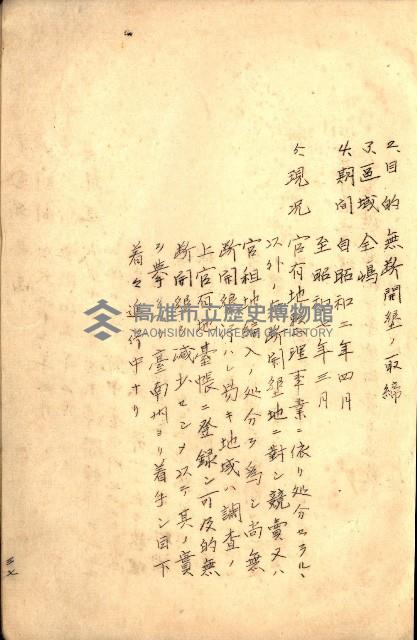 2、目的 無断開墾ノ取締
3、區域 全嶋
4、期間 自昭和二年四月
至昭和七年三月
5、現况 官有地整理事業ニ依リ処分セラル、
以外ノ無断開墾地ニ對シ競賣又ハ
官租地編入ノ処分ヲ為シ尚無
断開墾セラレ易キ地域ハ調査ノ
上官有地臺帳ニ登録シ可及的無
断開墾ノ減少センヲ以テ其ノ實
ヲ擧ケ 臺南州ヨリ着手シ目下
着々進行中ナリ
高雄市立歷史博物館
KAOHSIUNG MUSEUM OF HISTORY